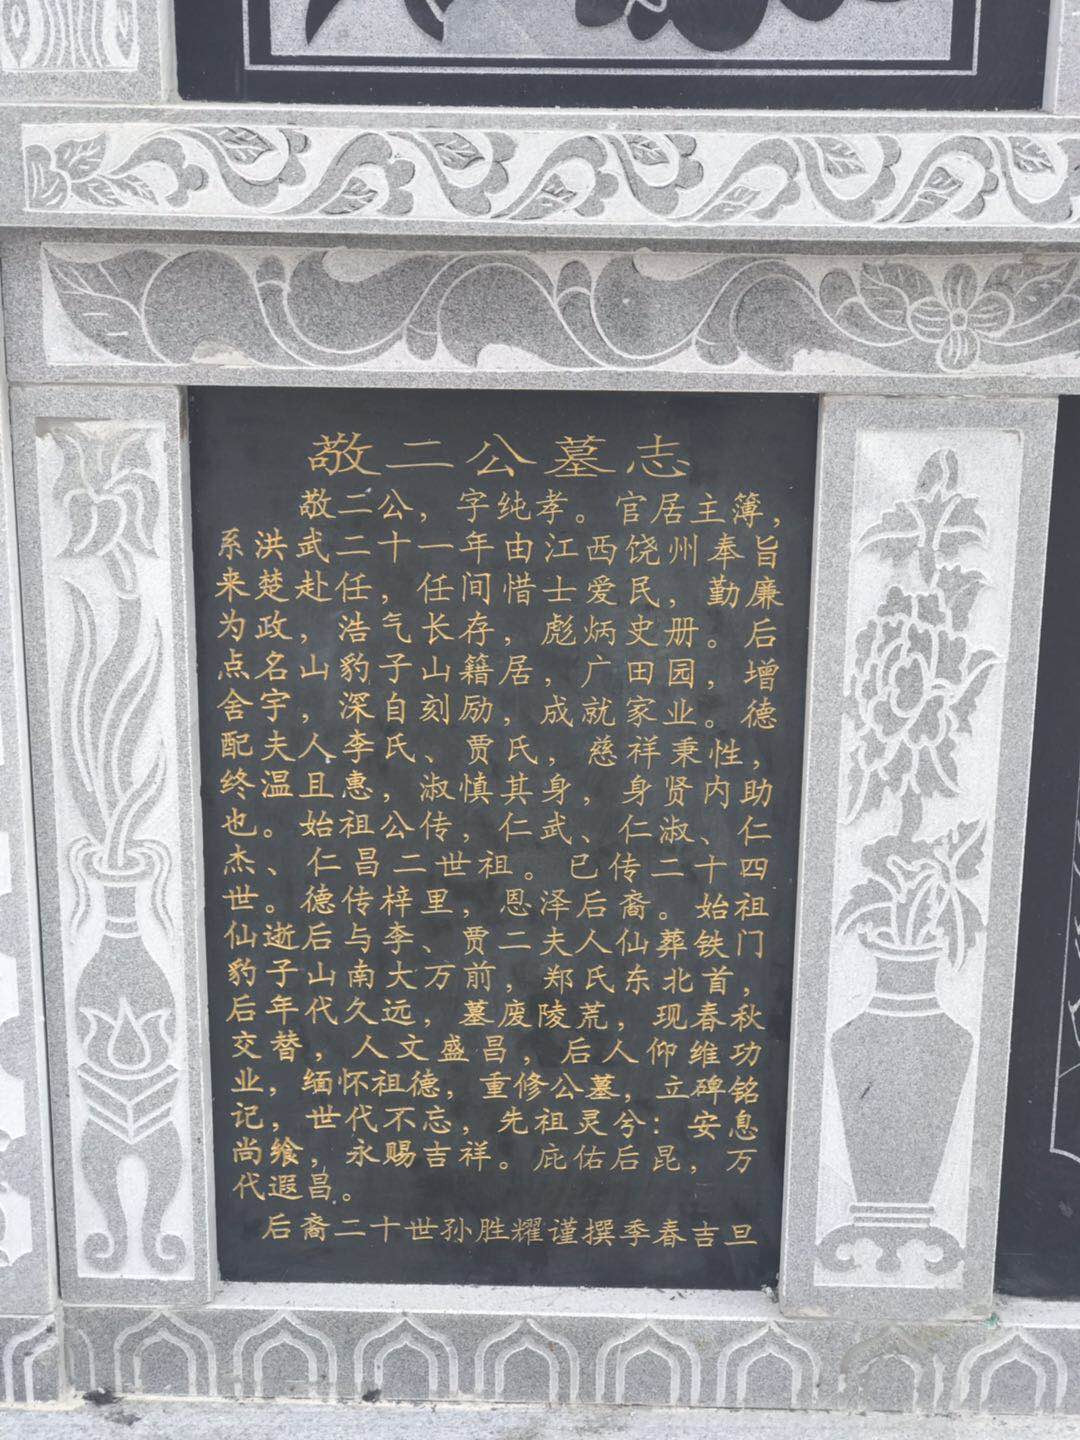 敬二公墓志
敬二公，字纯孝。官居主簿，
系洪武二十一年由江西饶州奉旨
来楚赴任，任间惜士爱民，勤廉
为政，浩气长存，彪炳史册。后
点名山豹子山籍居，广田园，增
舍宇，深自刻励，成就家业。德
配夫人李氏、贾氏，慈祥秉性，
终温且惠，淑慎其身，身贤内助
也。始祖公传，仁武、仁淑、仁
杰、仁昌二世祖。已传二十四
世。德传梓里，恩泽后裔。始祖
仙逝后与李、贾二夫人仙葬铁门
豹子山南大万前，郑氏东北首，
后年代久远，墓废陵荒，现春秋
交替，人文盛昌，后人仰维功
业，缅怀祖德，重修公墓，立碑铭
记，世代不忘，先祖灵兮：安息
尚飨，永赐吉祥。庇佑后昆，万
代遐昌。
后裔二十世孙胜耀谨撰季春吉旦